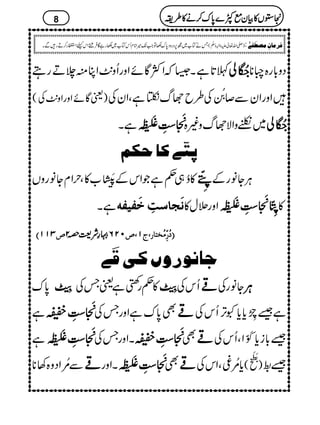 نجاستوں کا بیان مع کپڑے پاک کرنے کا طریقہ
8
فرمانِ مصطفیٰ
دوبارہ چبانا جُگالی کہلاتا ہے۔ جیسا کہ اکثر گائے اور اُونٹ اپنا منہ چلاتے رہتے
ہیں اور ان سے صابُن کی طرح جھاگ نکلتا ہے، ان کی (یعنی گائے اور اونٹ کی)
جُگالی میں نکلنے والا جھاگ وغیرہ نَجاستِ غَلِیظہ ہے۔
پِتّے کا حکم
ہر جانور کے پِتّے کا وُہی حکم ہے جو اس کے پیشاب کا، حرام جانوروں
کا پِتّا نَجاستِ غَلِیظہ اور حلال کا نَجاستِ خَفیفہ ہے۔
(دُرِّمُختار، ج۱، ص۶۲۰، بہارِ شریعت حصہ۲ ص۱۱۳)
جانوروں کی قَے
ہر جانور کی قَے اُس کی بِیٹ کا حکم رکھتی ہے یعنی جس کی بِیٹ پاک
ہے جیسے چڑیا یا کبوتر اُس کی قَے بھی پاک ہے اور جس کی نَجاستِ خَفیفہ ہے
جیسے باز یا کوّا، اُس کی قَے بھی نَجاستِ خَفیفہ۔ اور جس کی نَجاستِ غَلِیظہ ہے
جیسے بَط (بَطَخ) یا مُرغی، اس کی قَے بھی نَجاستِ غَلِیظہ۔ اور قَے سے مُراد وہ کھانا